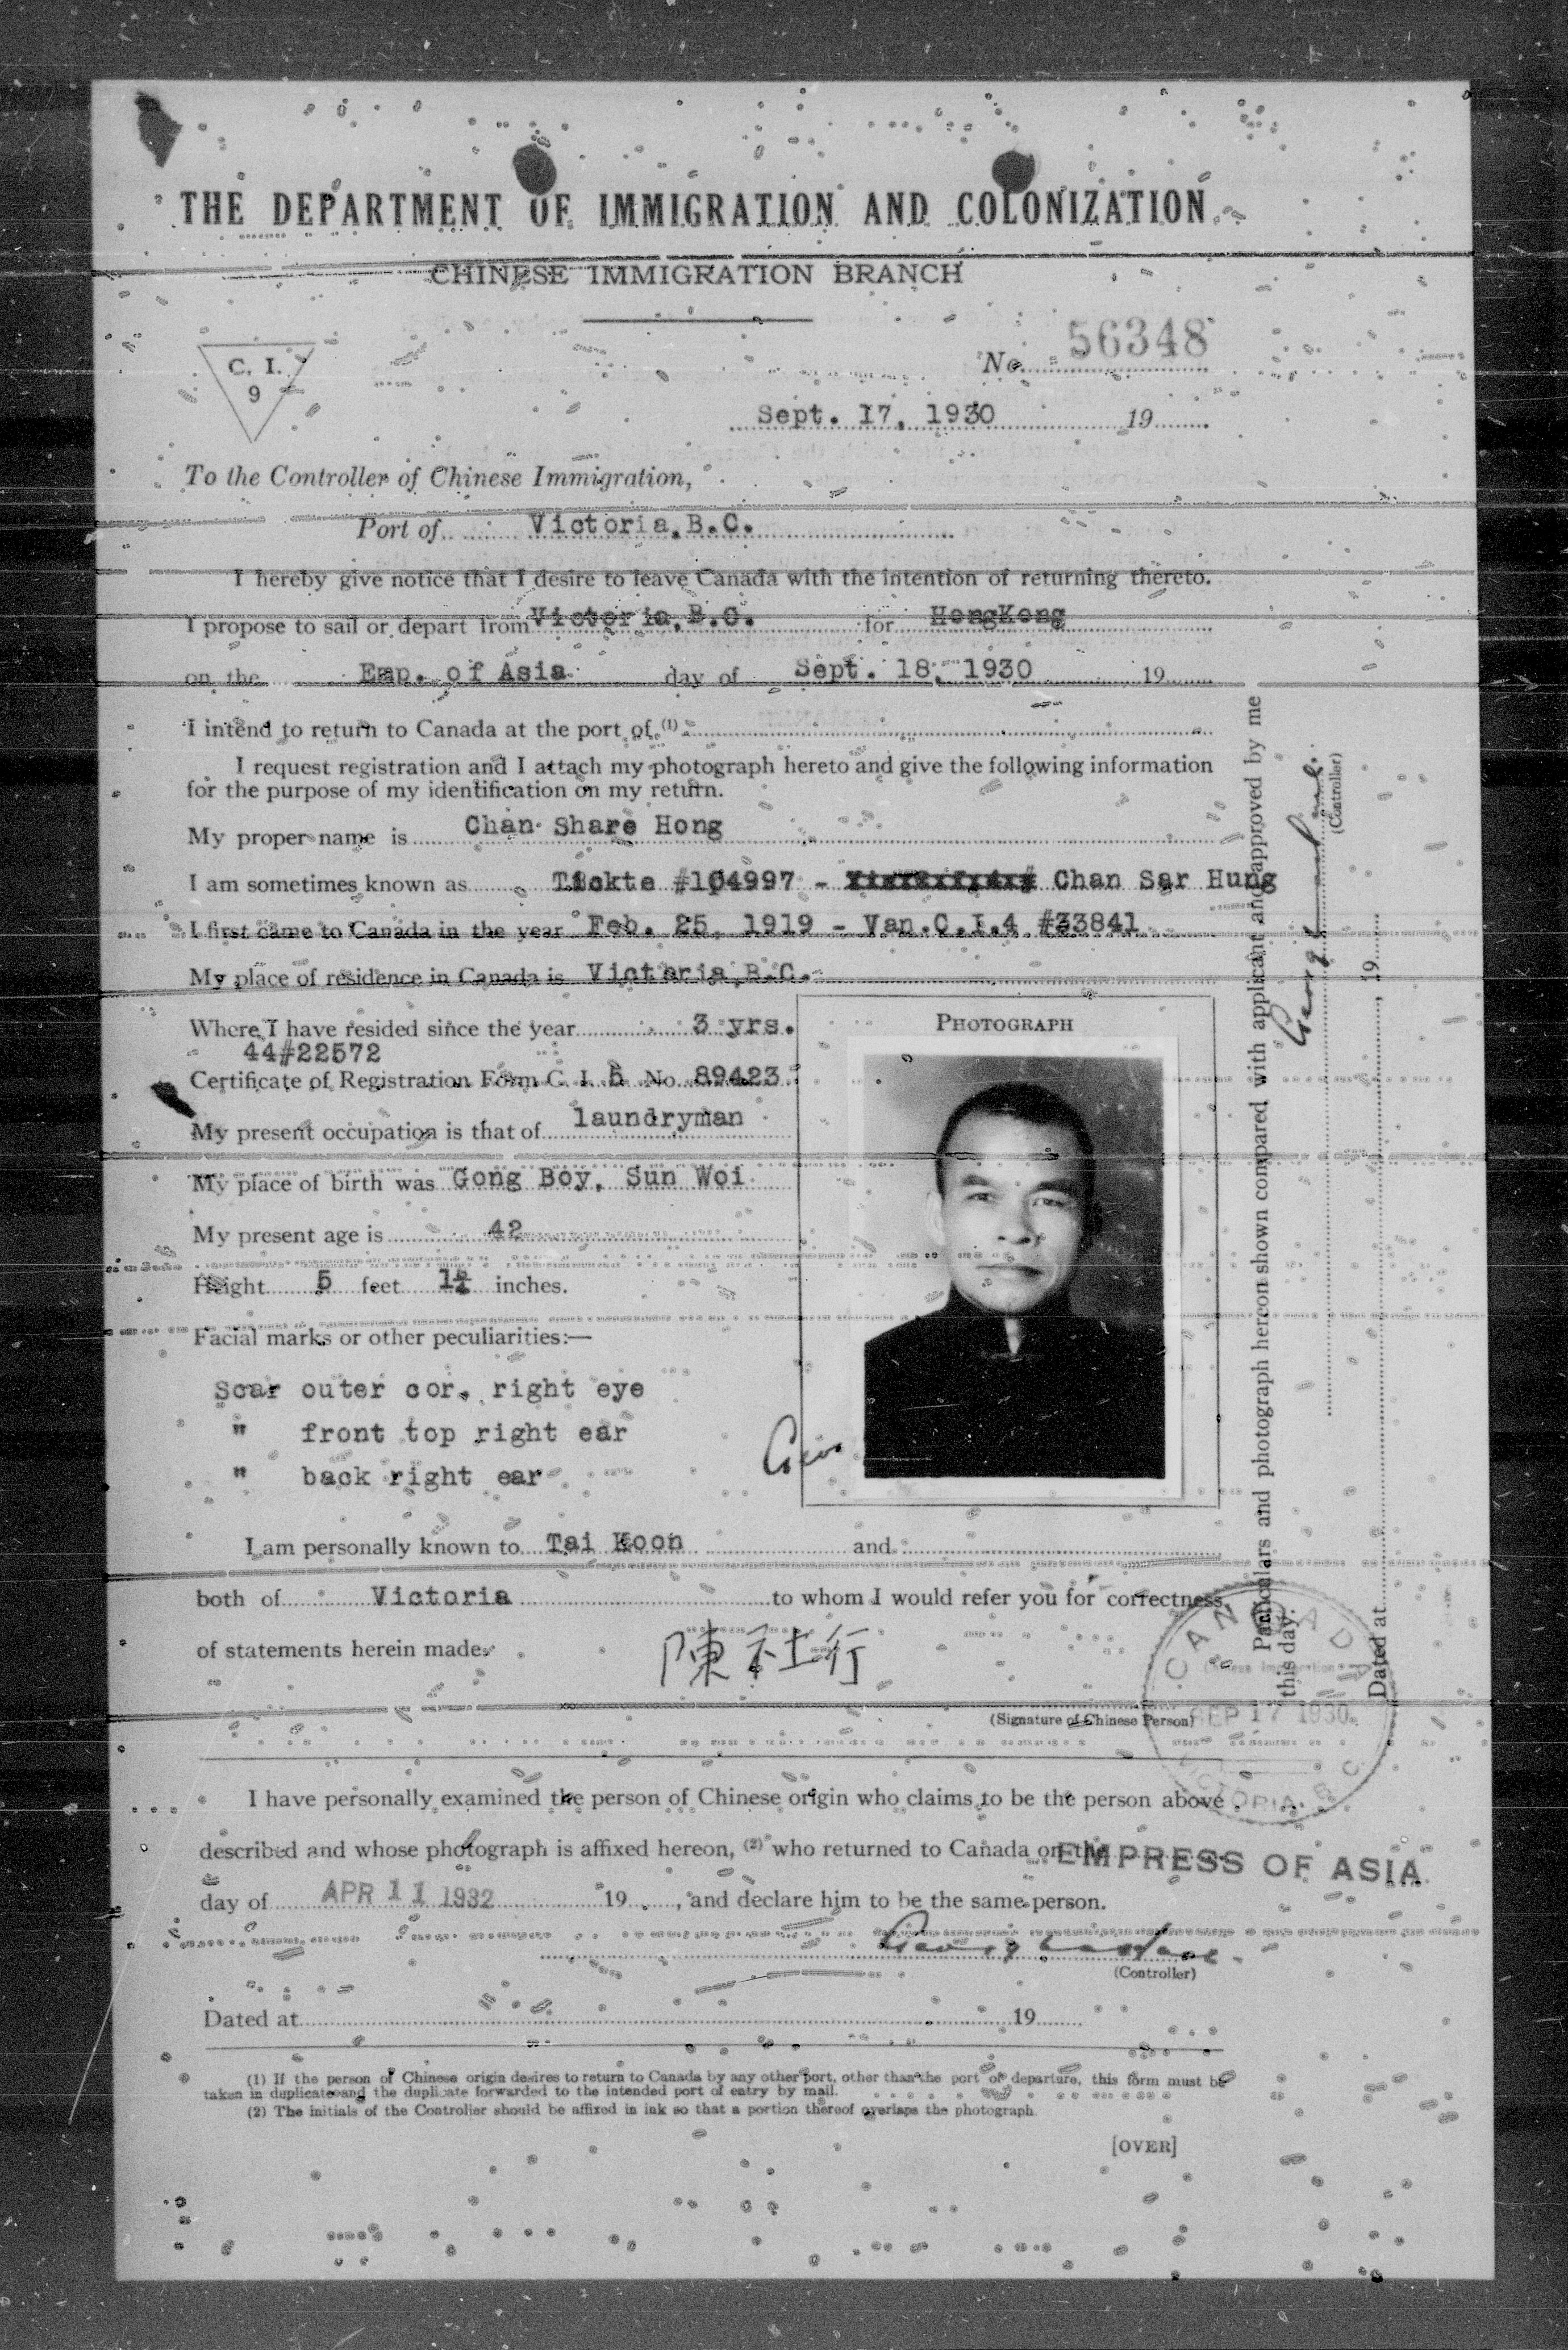 THE DEPARTMENT OF IMMIGRATION AND COLONIZATION
CHINESE IMMIGRATION BRANCH
C. I.
9
No. 56348
Sept. 17, 1930 19
To the Controller of Chinese Immigration,
Port of Victoria, B.C.
I hereby give notice that I desire to leave Canada with the intention of returning thereto.
I propose to sail or depart from Victoria, B.C. for HongKong
on the Emp. of Asia day of Sept. 18, 1930 19
I intend to return to Canada at the port of (1)
I request registration and I attach my photograph hereto and give the following information
for the purpose of my identification on my return.
My proper name is Chan Share Hong
I am sometimes known as #104997 - Chan Sar Hung
I first came to Canada in the year Feb. 25, 1919 - Van.C.I.4 #33841
My place of residence in Canada is Victoria, B.C.
Where I have resided since the year 3 yrs.
44#22572
Certificate of Registration Form C. I. 5 No. 89423
My present occupation is that of laundryman
My place of birth was Gong Boy, Sun Woi
My present age is 42
Height 5 feet inches.
Facial marks or other peculiarities:—
Scar outer cor. right eye
" front top right ear
" back right ear
PHOTOGRAPH
I am personally known to Tai Koon and
both of Victoria to whom I would refer you for correctness
of statements herein made.
陳社行
(Signature of Chinese Person)
I have personally examined the person of Chinese origin who claims to be the person above
described and whose photograph is affixed hereon, (2) who returned to Canada on the EMPRESS OF ASIA
day of APR 11 1932 19 , and declare him to be the same person.
(Controller)
Dated at 19
(1) If the person of Chinese origin desires to return to Canada by any other port, other than the port of departure, this form must be
taken in duplicate and the duplicate forwarded to the intended port of entry by mail.
(2) The initials of the Controller should be affixed in ink so that a portion thereof overlaps the photograph.
[OVER]
Particulars and photograph hereon shown compared with applicant and approved by me
this day.
(Controller)
Dated at , 19
CANADA
Chinese Immigration
SEP 17 1930
VICTORIA B C